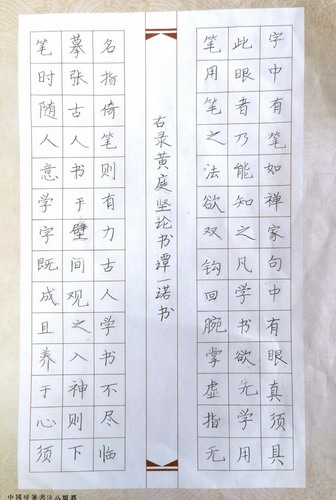 字中有笔如禅家句中有眼真须具
此眼者乃能知之凡学书欲先学用
笔用笔之法欲双钩回腕掌虚指无
右录黄庭坚论书谭一诺书
名指倚笔则有力古人学书不尽临
摹张古人书于壁间观之入神则下
笔时随人意学字既成且养于心须